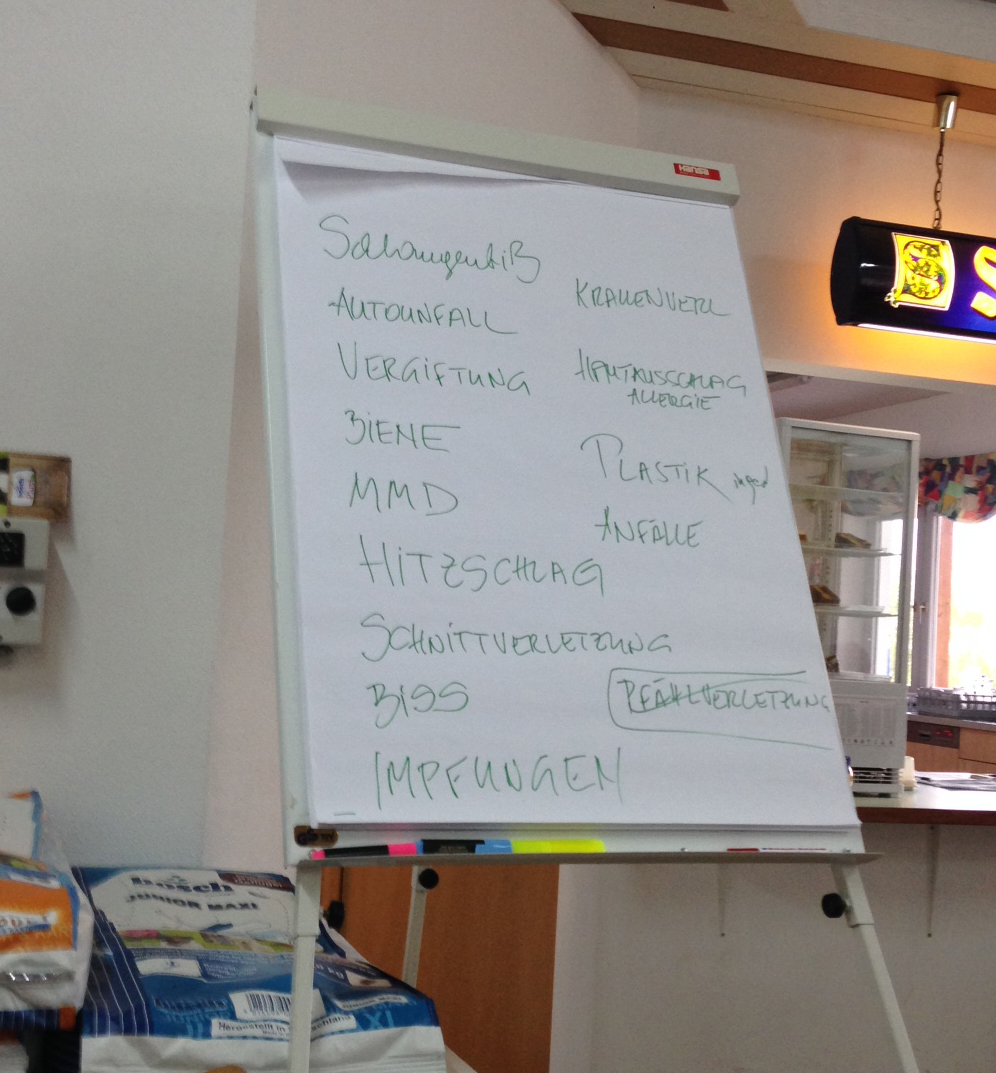 Hansa
Schlangenbiß
AUTOUNFALL
VERGIFTUNG
BIENE
MMD
HITZSCHLAG
SCHNITTVERLETZUNG
BISS
IMPFUNGEN
KRALLENVERL
HAUTAUSSCHLAG
ALLERGIE
PLASTIK
ANFÄLLE
PFÄHLVERLETZUNG
bosch
JUNIOR MAXI
Hergestellt in Deutschland
XL